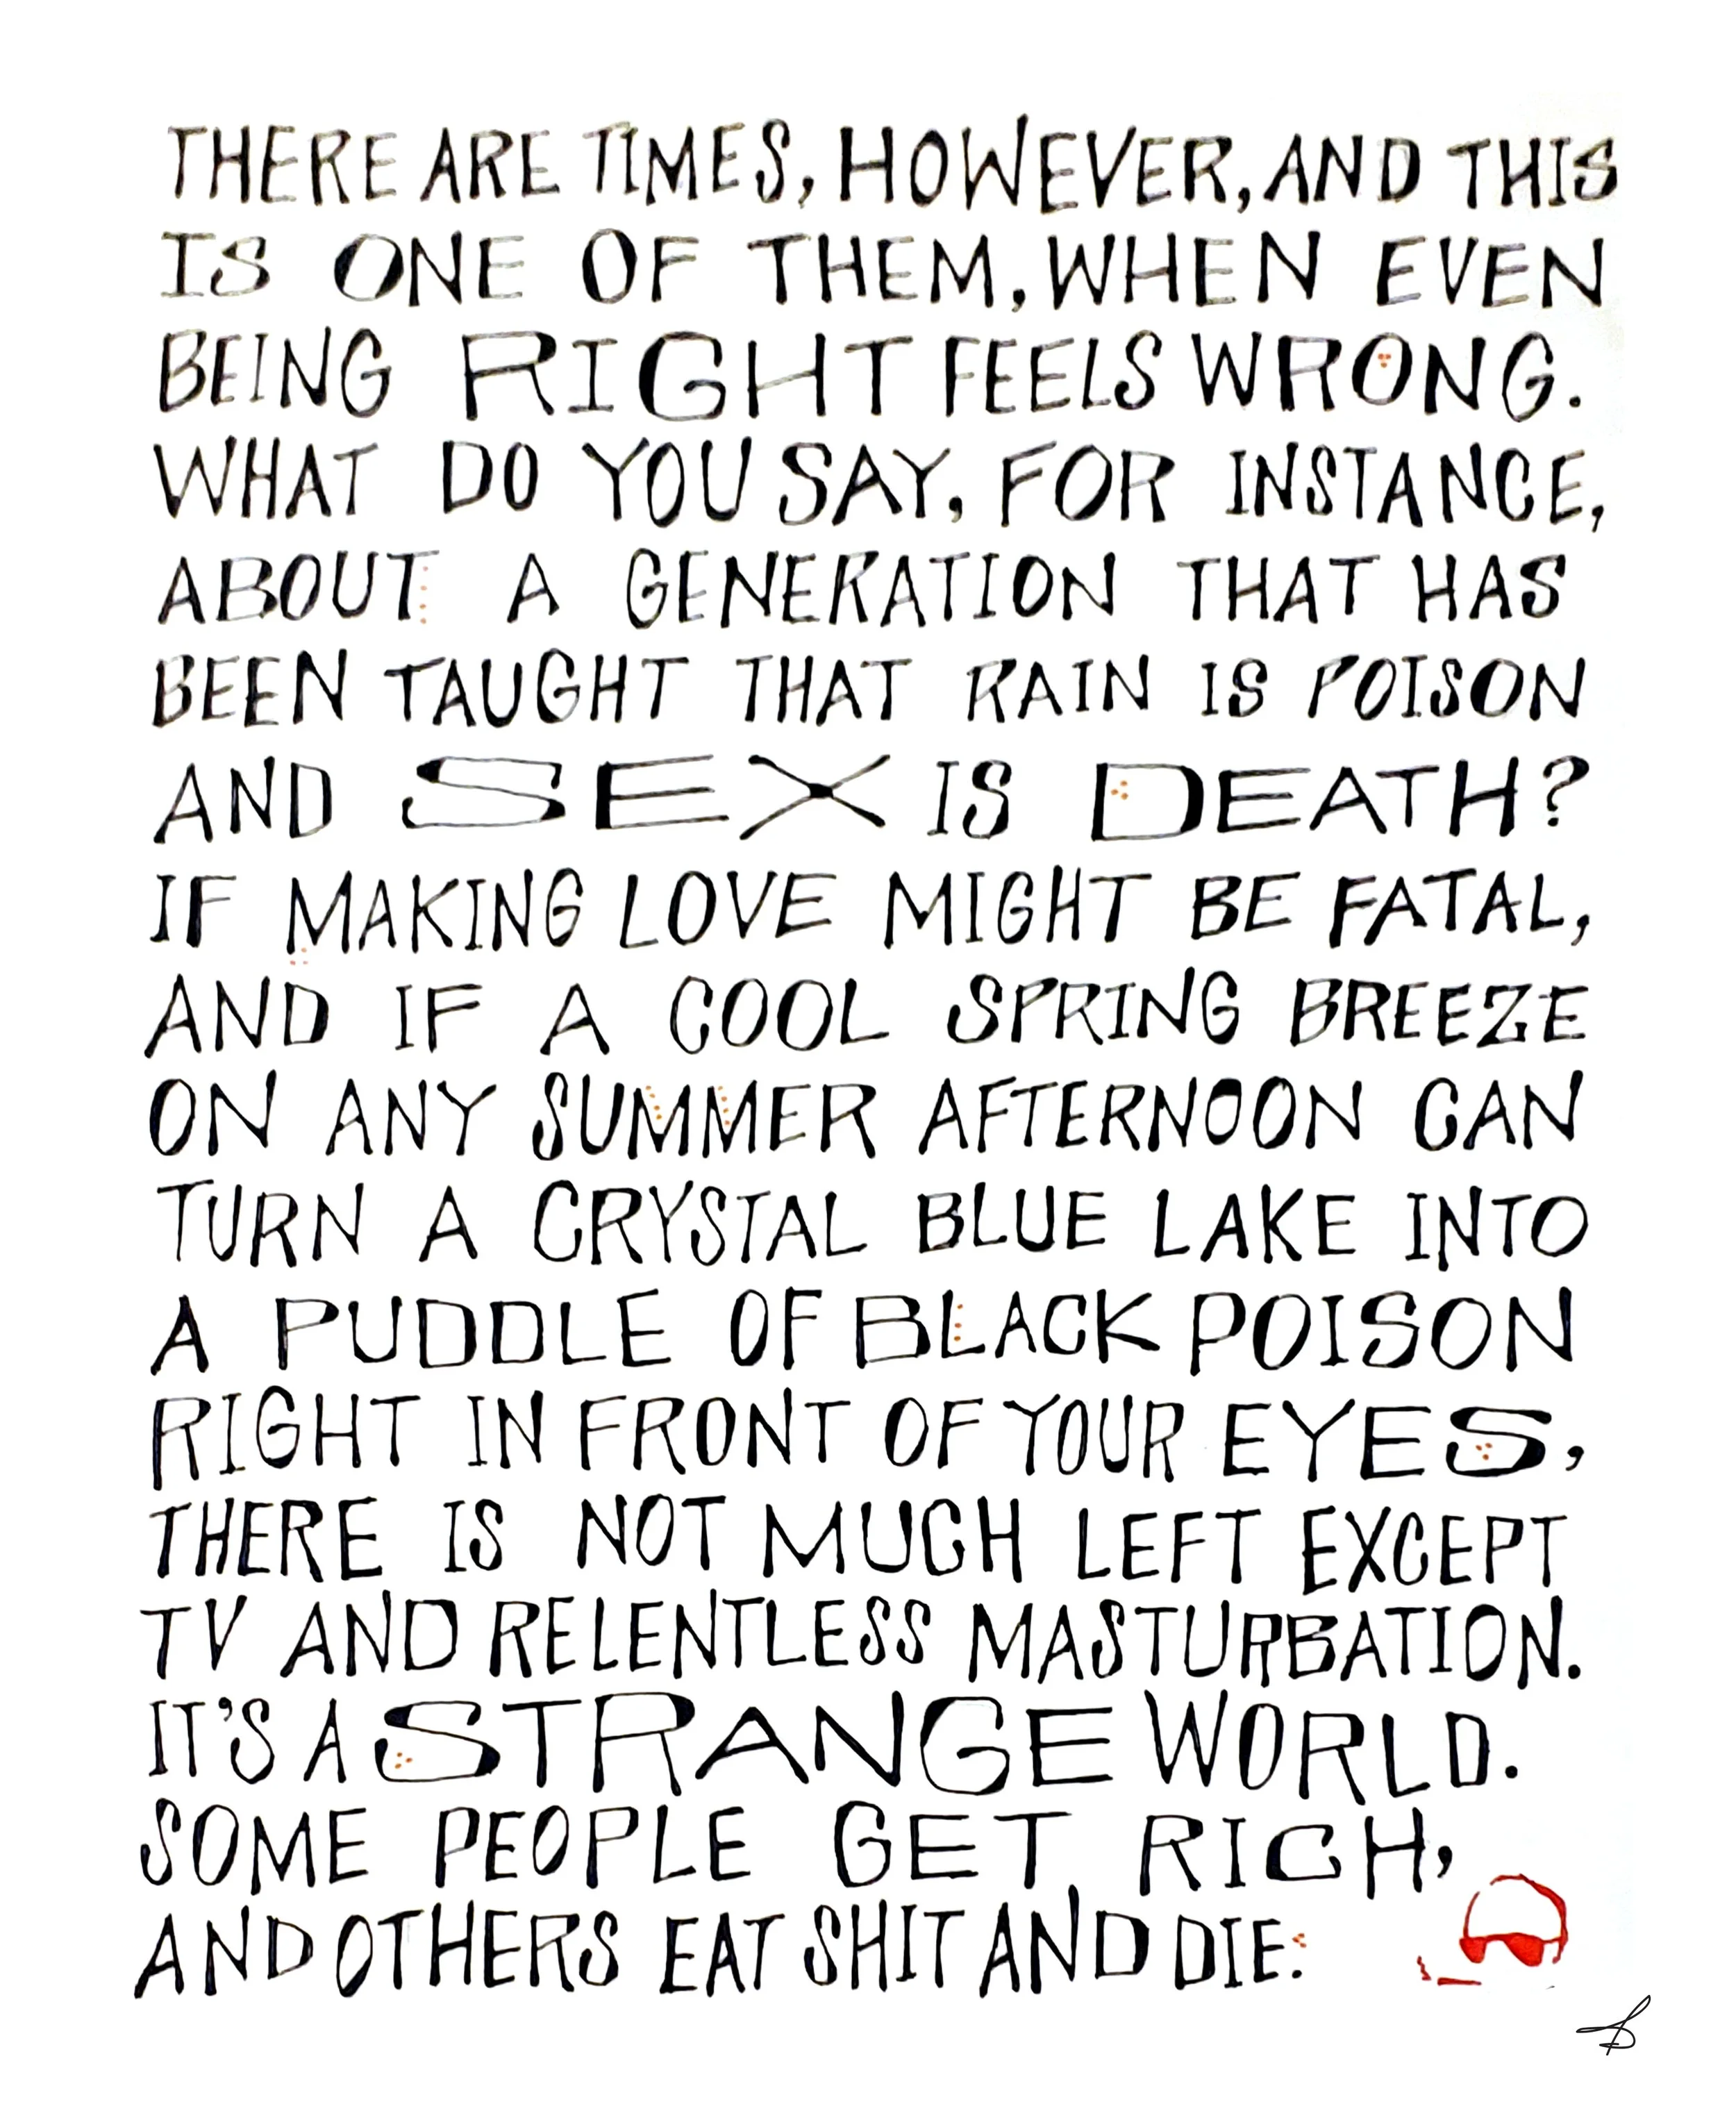 THERE ARE TIMES, HOWEVER, AND THIS
IS ONE OF THEM, WHEN EVEN
BEING RIGHT FEELS WRONG.
WHAT DO YOU SAY, FOR INSTANCE,
ABOUT A GENERATION THAT HAS
BEEN TAUGHT THAT RAIN IS POISON
AND SEX IS DEATH?
IF MAKING LOVE MIGHT BE FATAL,
AND IF A COOL SPRING BREEZE
ON ANY SUMMER AFTERNOON CAN
TURN A CRYSTAL BLUE LAKE INTO
A PUDDLE OF BLACK POISON
RIGHT IN FRONT OF YOUR EYES,
THERE IS NOT MUCH LEFT EXCEPT
TV AND RELENTLESS MASTURBATION.
IT'S A STRANGE WORLD.
SOME PEOPLE GET RICH,
AND OTHERS EAT SHIT AND DIE.